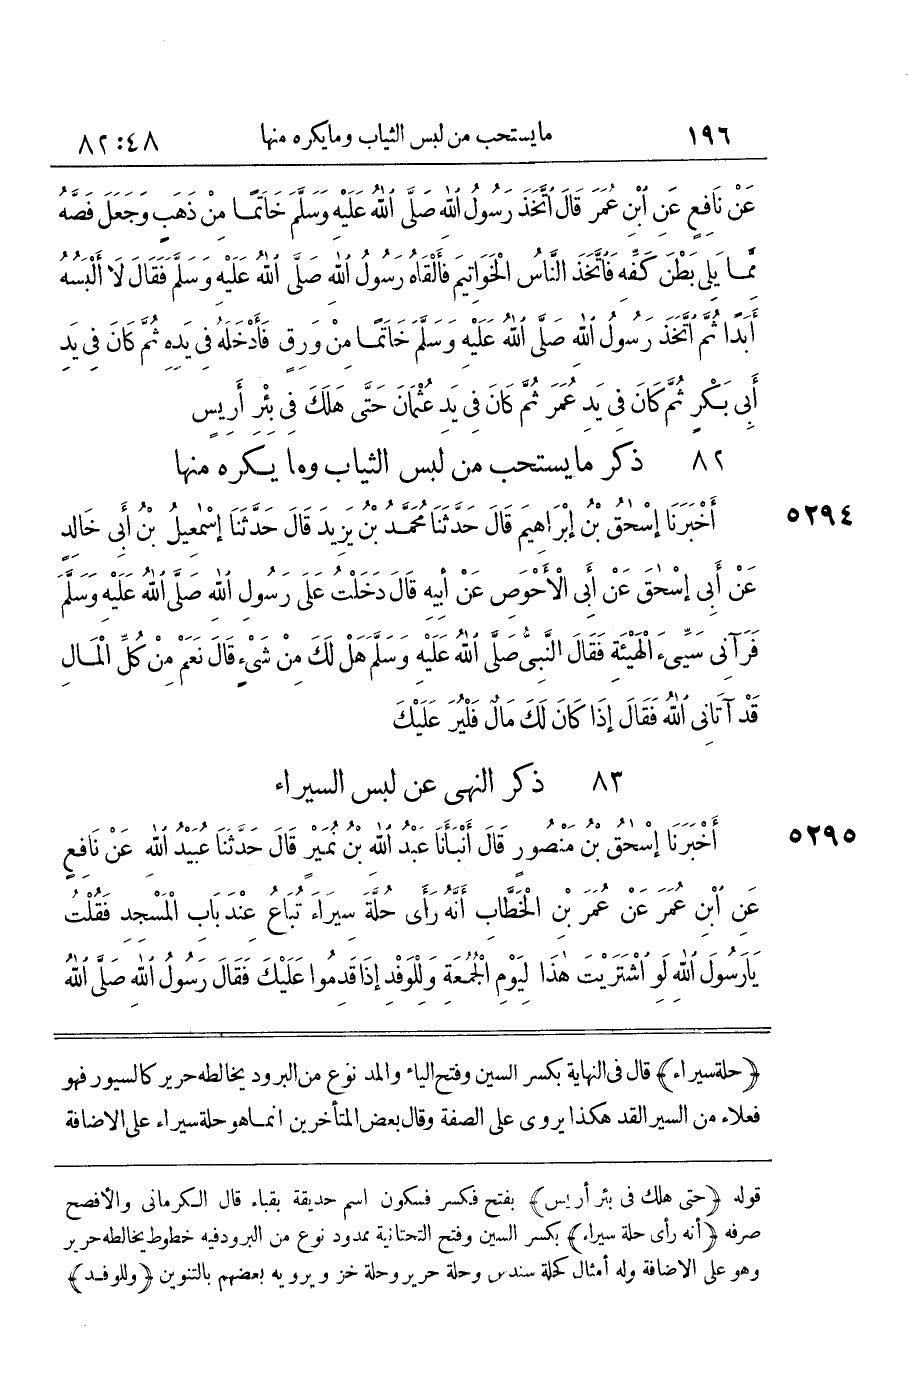 ١٩٦ مايستحب من لبس الثياب ومايكره منها ٤٨ : ٨٢
عَنْ نَافِعٍ عَنِ ٱبْنِ عُمَرَ قَالَ ٱتَّخَذَ رَسُولُ ٱللهِ صَلَّى ٱللهُ عَلَيْهِ وَسَلَّمَ خَاتَمًا مِنْ ذَهَبٍ وَجَعَلَ فَصَّهُ
مِمَّا يَلِى بَطْنَ كَفِّهِ فَٱتَّخَذَ النَّاسُ الْخَوَاتِيمَ فَأَلْقَاهُ رَسُولُ ٱللهِ صَلَّى ٱللهُ عَلَيْهِ وَسَلَّمَ فَقَالَ لَا أَلْبَسُهُ
أَبَدًا ثُمَّ ٱتَّخَذَ رَسُولُ ٱللهِ صَلَّى ٱللهُ عَلَيْهِ وَسَلَّمَ خَاتَمًا مِنْ وَرِقٍ فَأَدْخَلَهُ فِى يَدِهِ ثُمَّ كَانَ فِى يَدِ
أَبِى بَكْرٍ ثُمَّ كَانَ فِى يَدِ عُمَرَ ثُمَّ كَانَ فِى يَدِ عُثْمَانَ حَتَّى هَلَكَ فِى بِئْرِ أَرِيسٍ
٨٢ ذكر مايستحب من لبس الثياب وما يكره منها
٥٢٩٤ أَخْبَرَنَا إِسْحٰقُ بْنُ إِبْرَاهِيمَ قَالَ حَدَّثَنَا مُحَمَّدُ بْنُ يَزِيدَ قَالَ حَدَّثَنَا إِسْمٰعِيلُ بْنُ أَبِى خَالِدٍ
عَنْ أَبِى إِسْحٰقَ عَنْ أَبِى الْأَحْوَصِ عَنْ أَبِيهِ قَالَ دَخَلْتُ عَلَى رَسُولِ ٱللهِ صَلَّى ٱللهُ عَلَيْهِ وَسَلَّمَ
فَرَآنِى سَيِّىءَ الْهَيْئَةِ فَقَالَ النَّبِىُّ صَلَّى ٱللهُ عَلَيْهِ وَسَلَّمَ هَلْ لَكَ مِنْ شَىْءٍ قَالَ نَعَمْ مِنْ كُلِّ الْمَالِ
قَدْ آتَانِى ٱللهُ فَقَالَ إِذَا كَانَ لَكَ مَالٌ فَلْيُرَ عَلَيْكَ
٨٣ ذكر النهى عن لبس السيراء
٥٢٩٥ أَخْبَرَنَا إِسْحٰقُ بْنُ مَنْصُورٍ قَالَ أَنْبَأَنَا عَبْدُ ٱللهِ بْنُ نُمَيْرٍ قَالَ حَدَّثَنَا عُبَيْدُ ٱللهِ عَنْ نَافِعٍ
عَنِ ٱبْنِ عُمَرَ عَنْ عُمَرَ بْنِ الْخَطَّابِ أَنَّهُ رَأَى حُلَّةَ سِيَرَاءَ تُبَاعُ عِنْدَ بَابِ الْمَسْجِدِ فَقُلْتُ
يَارَسُولَ ٱللهِ لَوِ ٱشْتَرَيْتَ هٰذَا لِيَوْمِ الْجُمُعَةِ وَلِلْوَفْدِ إِذَا قَدِمُوا عَلَيْكَ فَقَالَ رَسُولُ ٱللهِ صَلَّى ٱللهُ
﴿حلة سيراء﴾ قال فى النهاية بكسر السين وفتح الياء والمد نوع من البرود يخالطه حرير كالسيور فهو
فعلاء من السير القد هكذا يروى على الصفة وقال بعض المتأخرين انما هو حلة سيراء على الاضافة
قوله ﴿حتى هلك فى بئر أريس﴾ بفتح فكسر فسكون اسم حديقة بقباء قال الكرمانى والأفصح
صرفه ﴿أنه رأى حلة سيراء﴾ بكسر السين وفتح التحتانية ممدود نوع من البرود فيه خطوط يخالطه حرير
وهو على الاضافة وله أمثال كحلة سندس وحلة حرير وحلة خز ويرويه بعضهم بالتنوين ﴿وللوفد﴾